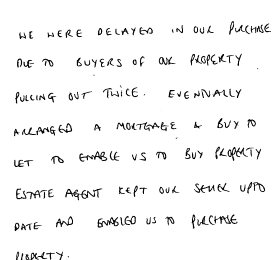 WE WERE DELAYED IN OUR PURCHASE
DUE TO BUYERS OF OUR PROPERTY
PULLING OUT TWICE. EVENTUALLY
ARRANGED A MORTGAGE & BUY TO
LET TO ENABLE US TO BUY PROPERTY
ESTATE AGENT KEPT OUR SELLER UPTO
DATE AND ENABLED US TO PURCHASE
PROPERTY.